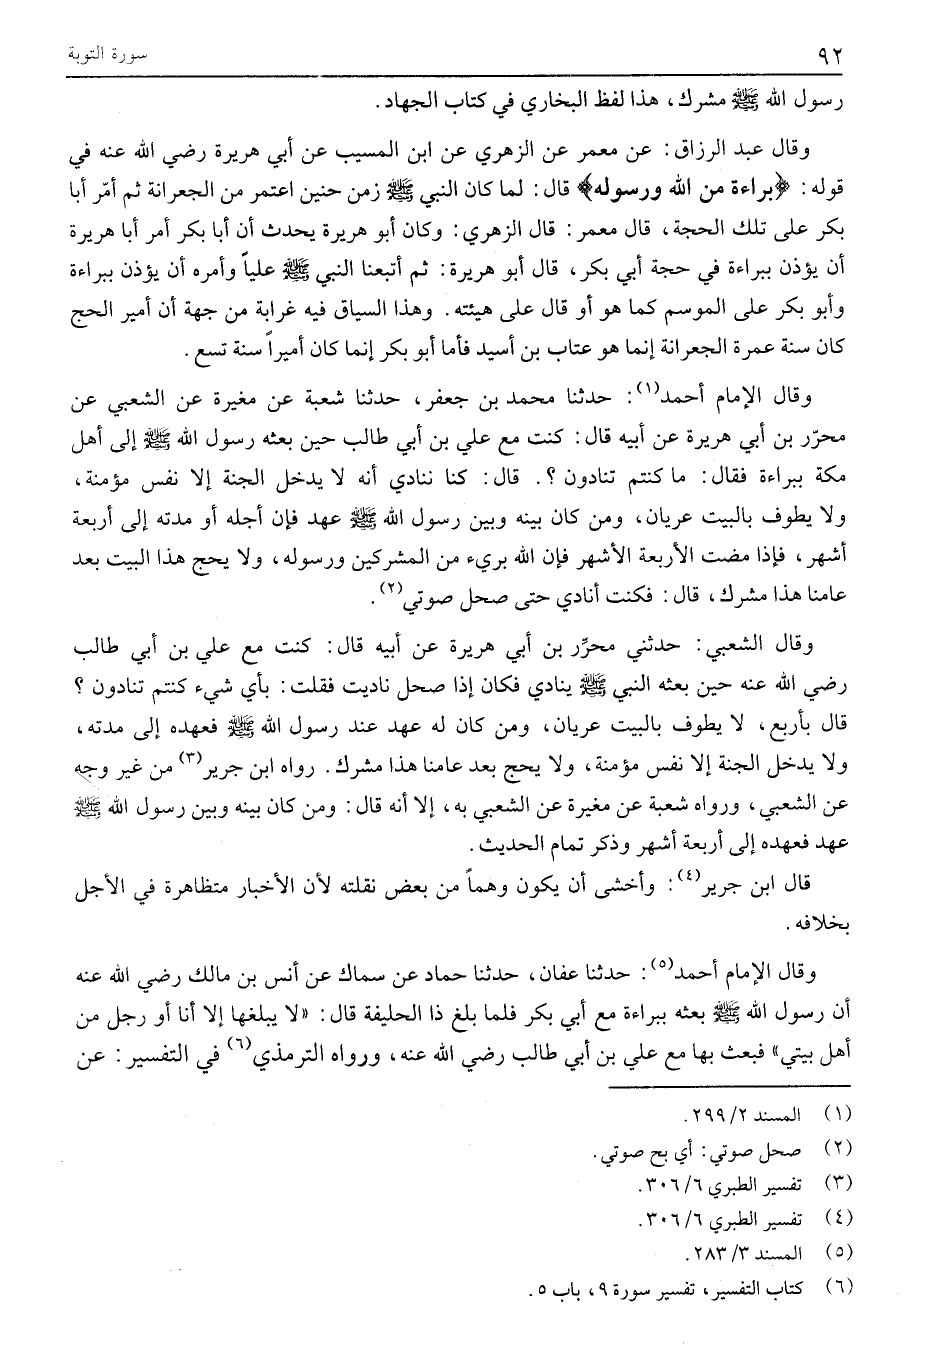 ٩٢ سورة التوبة
رسول الله ﷺ مشرك، هذا لفظ البخاري في كتاب الجهاد.
وقال عبد الرزاق: عن معمر عن الزهري عن ابن المسيب عن أبي هريرة رضي الله عنه في
قوله: ﴿براءة من الله ورسوله﴾ قال: لما كان النبي ﷺ زمن حنين اعتمر من الجعرانة ثم أمّر أبا
بكر على تلك الحجة، قال معمر: قال الزهري: وكان أبو هريرة يحدث أن أبا بكر أمر أبا هريرة
أن يؤذن ببراءة في حجة أبي بكر، قال أبو هريرة: ثم أتبعنا النبي ﷺ علياً وأمره أن يؤذن ببراءة
وأبو بكر على الموسم كما هو أو قال على هيئته. وهذا السياق فيه غرابة من جهة أن أمير الحج
كان سنة عمرة الجعرانة إنما هو عتاب بن أسيد فأما أبو بكر إنما كان أميراً سنة تسع.
وقال الإمام أحمد(١): حدثنا محمد بن جعفر، حدثنا شعبة عن مغيرة عن الشعبي عن
محرّر بن أبي هريرة عن أبيه قال: كنت مع علي بن أبي طالب حين بعثه رسول الله ﷺ إلى أهل
مكة ببراءة فقال: ما كنتم تنادون ؟. قال: كنا ننادي أنه لا يدخل الجنة إلا نفس مؤمنة،
ولا يطوف بالبيت عريان، ومن كان بينه وبين رسول الله ﷺ عهد فإن أجله أو مدته إلى أربعة
أشهر، فإذا مضت الأربعة الأشهر فإن الله بريء من المشركين ورسوله، ولا يحج هذا البيت بعد
عامنا هذا مشرك، قال: فكنت أنادي حتى صحل صوتي(٢).
وقال الشعبي: حدثني محرِّر بن أبي هريرة عن أبيه قال: كنت مع علي بن أبي طالب
رضي الله عنه حين بعثه النبي ﷺ ينادي فكان إذا صحل ناديت فقلت: بأي شيء كنتم تنادون ؟
قال بأربع، لا يطوف بالبيت عريان، ومن كان له عهد عند رسول الله ﷺ فعهده إلى مدته،
ولا يدخل الجنة إلا نفس مؤمنة، ولا يحج بعد عامنا هذا مشرك. رواه ابن جرير(٣) من غير وجه
عن الشعبي، ورواه شعبة عن مغيرة عن الشعبي به، إلا أنه قال: ومن كان بينه وبين رسول الله ﷺ
عهد فعهده إلى أربعة أشهر وذكر تمام الحديث.
قال ابن جرير(٤): وأخشى أن يكون وهماً من بعض نقلته لأن الأخبار متظاهرة في الأجل
بخلافه.
وقال الإمام أحمد(٥): حدثنا عفان، حدثنا حماد عن سماك عن أنس بن مالك رضي الله عنه
أن رسول الله ﷺ بعثه ببراءة مع أبي بكر فلما بلغ ذا الحليفة قال: «لا يبلغها إلا أنا أو رجل من
أهل بيتي» فبعث بها مع علي بن أبي طالب رضي الله عنه، ورواه الترمذي(٦) في التفسير: عن
(١) المسند ٢/ ٢٩٩.
(٢) صحل صوتي: أي بح صوتي.
(٣) تفسير الطبري ٦/ ٣٠٦.
(٤) تفسير الطبري ٦/ ٣٠٦.
(٥) المسند ٣/ ٢٨٣.
(٦) كتاب التفسير، تفسير سورة ٩، باب ٥.